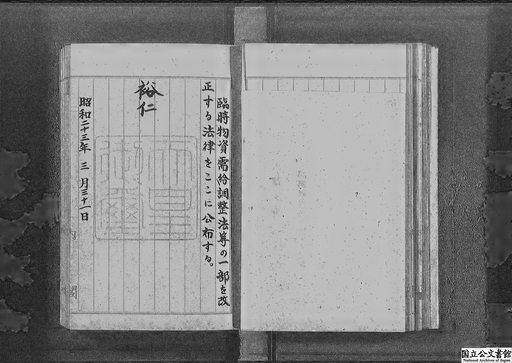 臨時物資需給調整法等の一部を改
正する法律をここに公布する。
裕仁
昭和二十三年 三 月三十一日
国立公文書館
National Archives of Japan